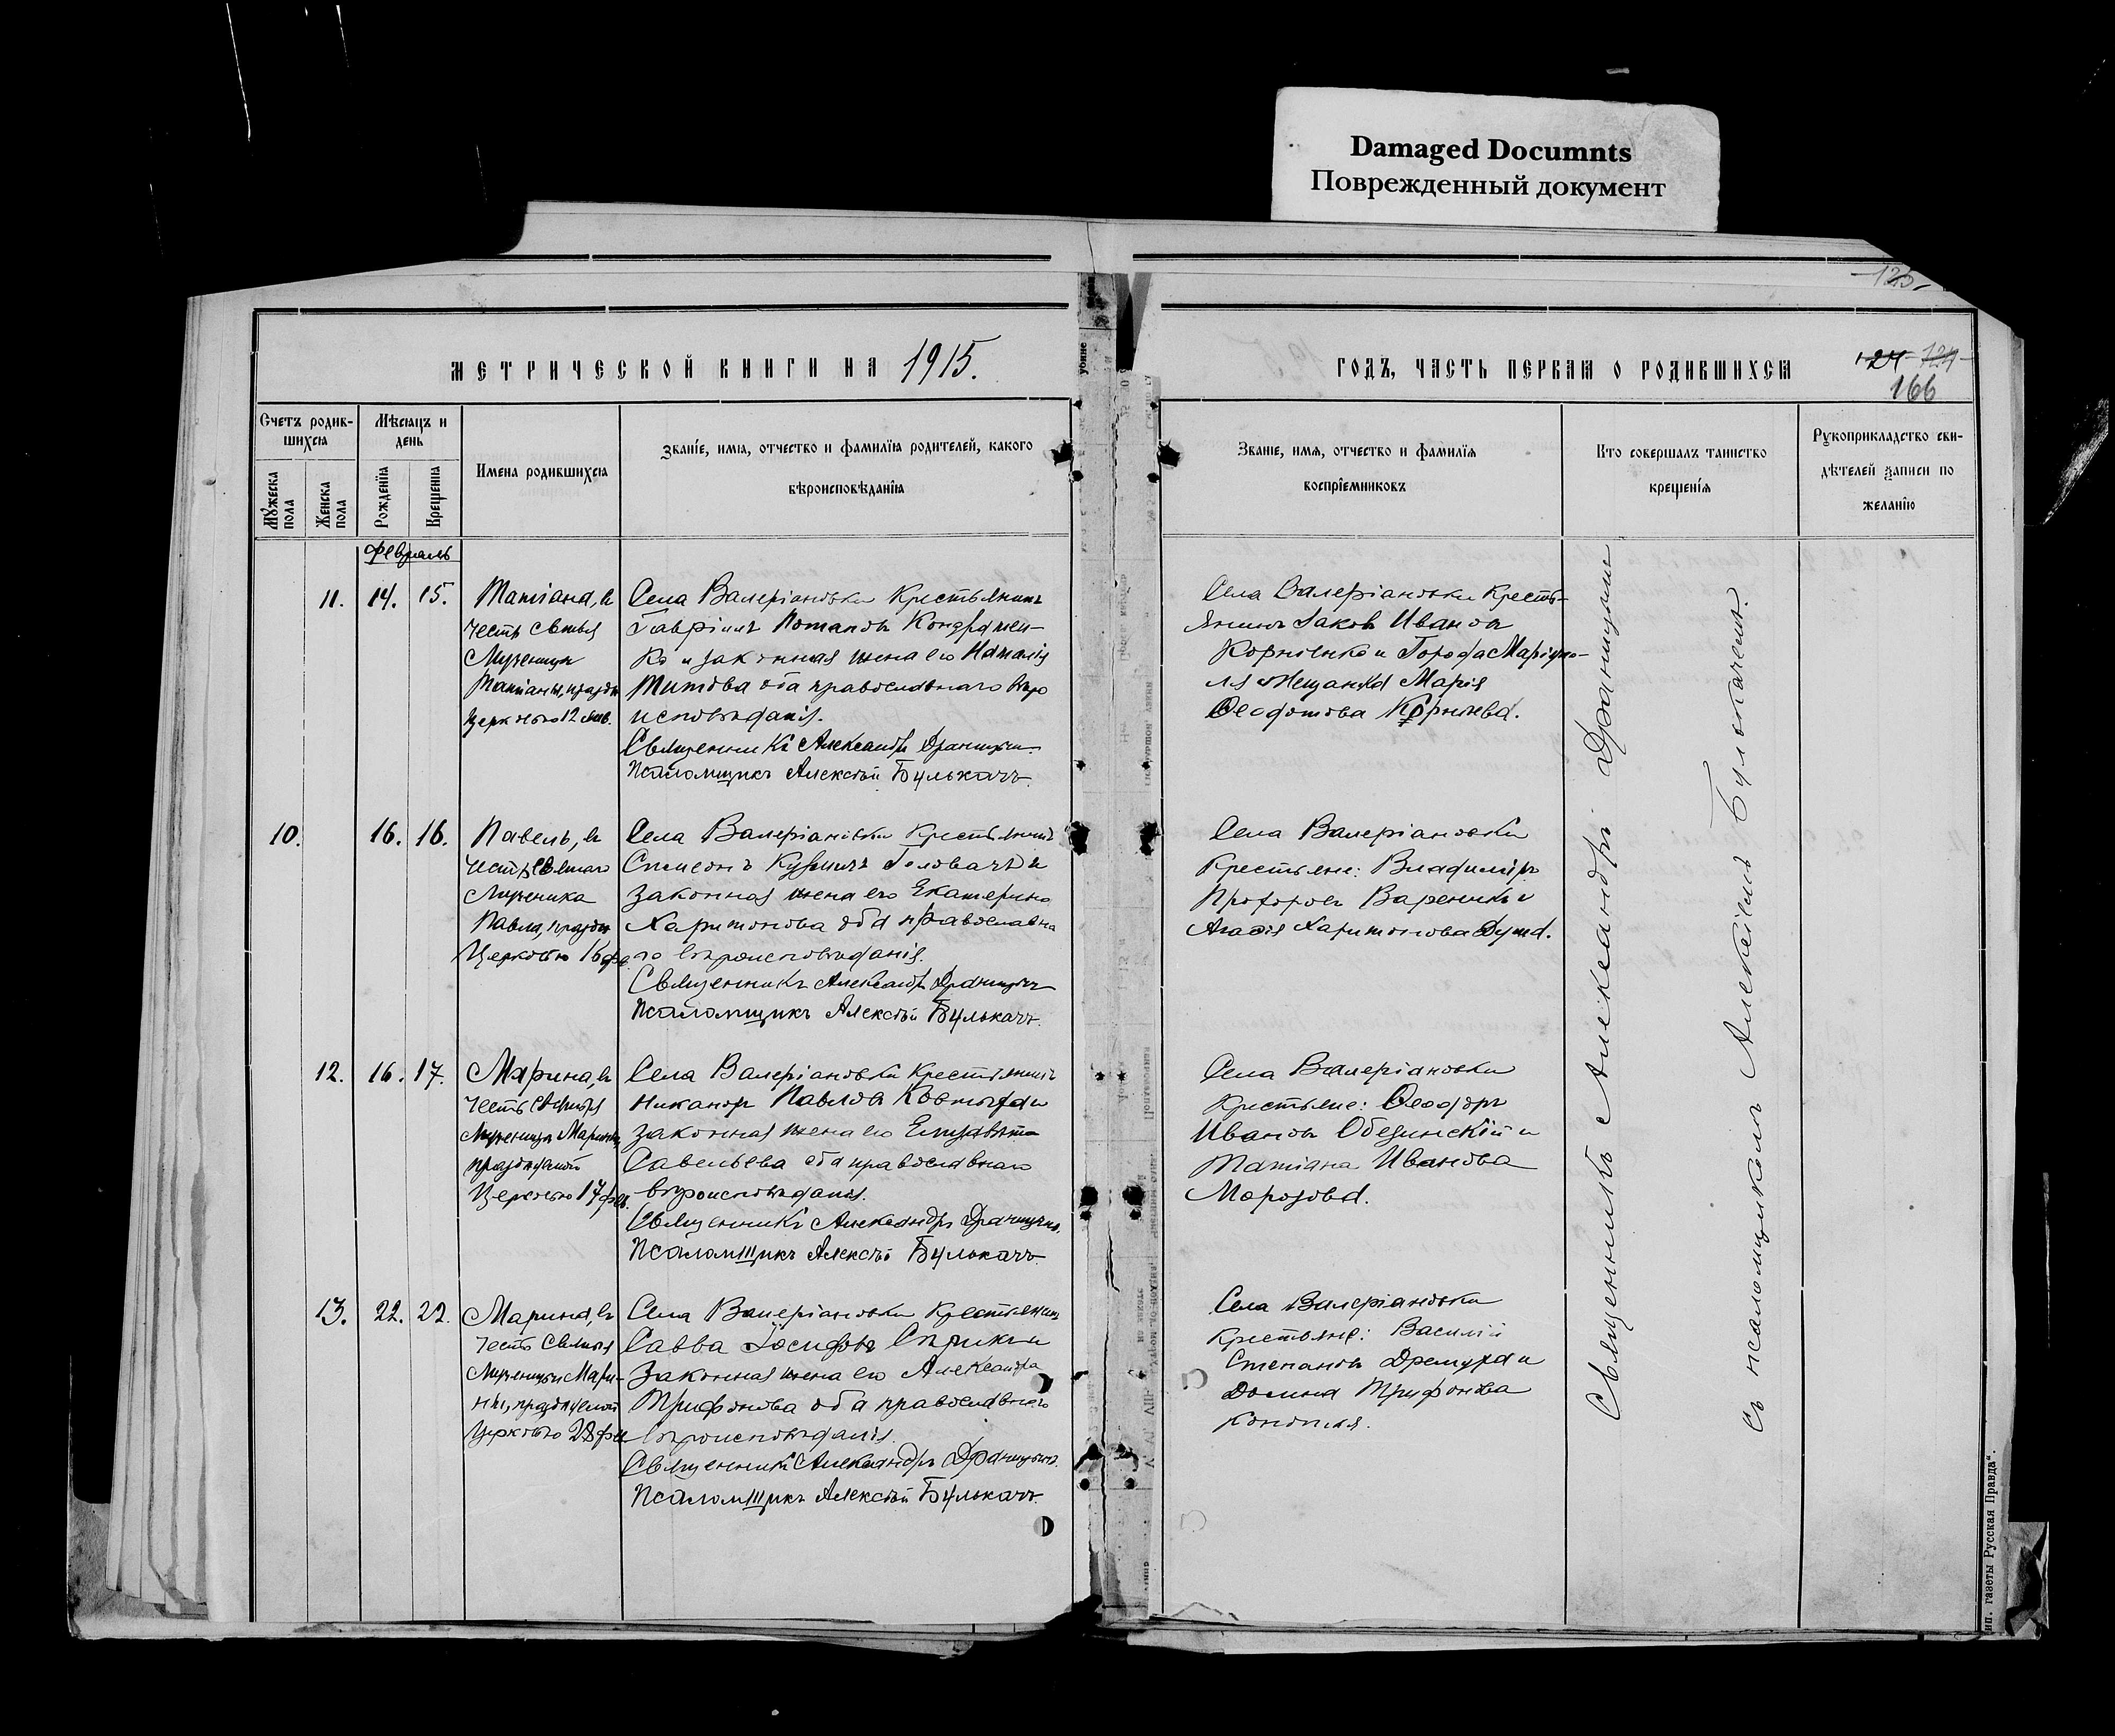 Damaged Documnts
Поврежденный документ
МЕТРИЧЕСКОЙ КНИГИ НА 1915.
ГОДЪ, ЧАСТЬ ПЕРВАЯ О РОДИВШИХСЯ
166
Счетъ родив-
шихся
Мѣсяцъ и
день
Мужеска
пола
Женска
пола
Рожденія
Крещенія
Имена родившихся
Званіе, имя, отчество и фамилія родителей, какого
вѣроисповѣданія
Званіе, имя, отчество и фамилія
воспріемниковъ
Кто совершалъ таинство
крещенія
Рукоприкладство сви-
дѣтелей записи по
желанію
Февраль
11. 14. 15.
Татіана, въ
честь святыя
Мученицы
Татіаны, праздн
Церковью 12 Янв.
Села Валеріановки Крестьянинъ
Гавріилъ Потаповъ Кондратен-
ко и законная жена его Наталія
Титова оба православнаго вѣро
исповѣданія.
Священникъ Александръ Драницынъ
Псаломщикъ Алексѣй Булькачъ.
Села Валеріановки Кресть-
янинъ Іаковъ Ивановъ
Корніенко и Города Маріупо-
ля Мещанка Марія
Ѳеодотова
10. 16. 16.
Павелъ, въ
честь Святаго
Мученика
Павла, праздн
Церковью 16 фе.
Села Валеріановки Крестьянинъ
Симеонъ Кузминъ Головачъ и
законная жена его Екатерина
Харитонова оба православна
го вѣроисповѣданія.
Священникъ Александръ Драницынъ
Псаломщикъ Алексѣй Булькачъ.
Села Валеріановки
Крестьяне: Владиміръ
Прохоровъ Вареникъ и
Агафія Харитонова
12. 16. 17.
Марина, въ
честь Святыя
Мученицы Марины,
празднуемой
Церковью 17 фев.
Села Валеріановки Крестьянинъ
Никаноръ Павловъ Ковтыха и
законная жена его Елизавета
Савельева оба православнаго
вѣроисповѣданія.
Священникъ Александръ Драницынъ.
Псаломщикъ Алексѣй Булькачъ.
Села Валеріановки
Крестьяне: Ѳеодоръ
Ивановъ Обединскій и
Татіана Иванова
Морозова.
13. 22. 22.
Марина, въ
честь Святыя
Мученицы Мари-
ны, празднуемой
Церковью 28 фев
Села Валеріановки Крестьянинъ
Савва Іосифовъ Сприкъ и
законная жена его Александра
Трифонова оба православнаго
вѣроисповѣданія.
Священникъ Александръ Драницынъ.
Псаломщикъ Алексѣй Булькачъ.
Села Валеріановки
Крестьяне: Василій
Степановъ Дремуха и
Домна Трифонова
Конопля.
Священникъ Александръ Драницынъ
Съ псаломщикомъ Алексіемъ Булькачемъ.
тип. газеты Русская Правда".